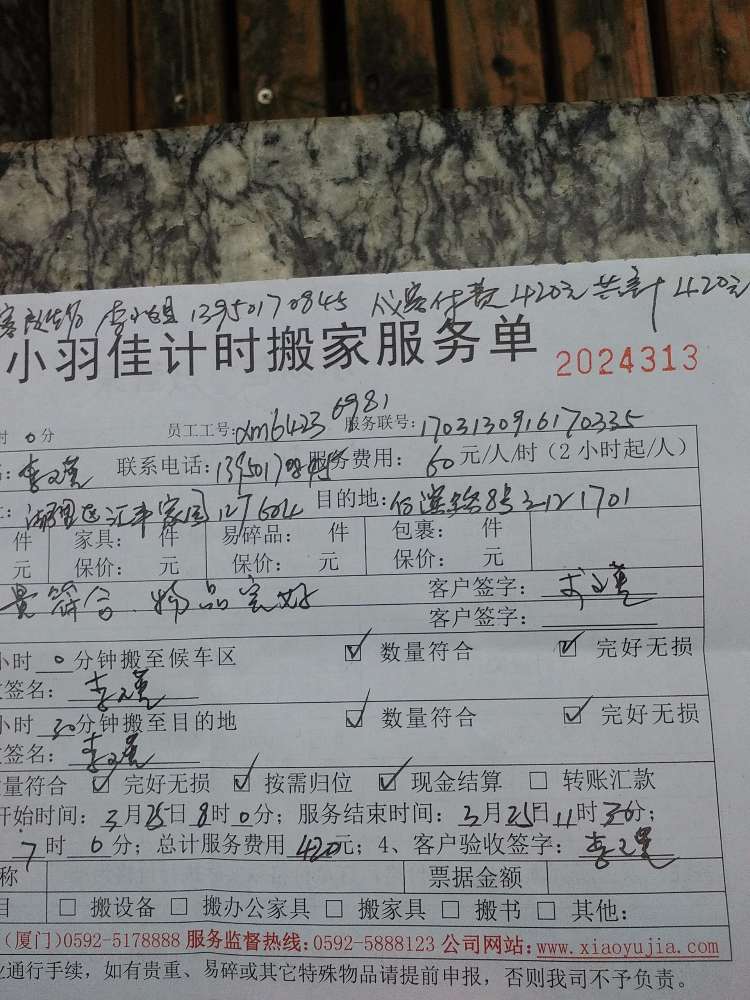 李小姐 13950170845 仅客付费420元 共计420元
小羽佳计时搬家服务单 2024313
时 0分 员工工号:xm6423 6981 服务联号:1703130916170335
联系电话: 服务费用: 60元/人/时(2小时起/人)
湖里区汇丰家园127604 目的地:
件 家具: 件 易碎品: 件 包裹: 件
元 保价: 元 保价: 元 保价: 元
量符合.物品完好 客户签字:
客户签字:
小时 0分钟搬至候车区 ☑ 数量符合 ☑ 完好无损
签名:
小时 30分钟搬至目的地 ☑ 数量符合 ☑ 完好无损
签名:
量符合 ☑ 完好无损 ☑ 按需归位 ☑ 现金结算 □ 转账汇款
开始时间:3月25日8时0分;服务结束时间:3月25日11时30分;
7时0分;总计服务费用420元;4、客户验收签字:
称 票据金额
目 □ 搬设备 □ 搬办公家具 □ 搬家具 □ 搬书 □ 其他:
(厦门)0592-5178888 服务监督热线:0592-5888123 公司网站:www.xiaoyujia.com
业通行手续,如有贵重、易碎或其它特殊物品请提前申报,否则我司不予负责。